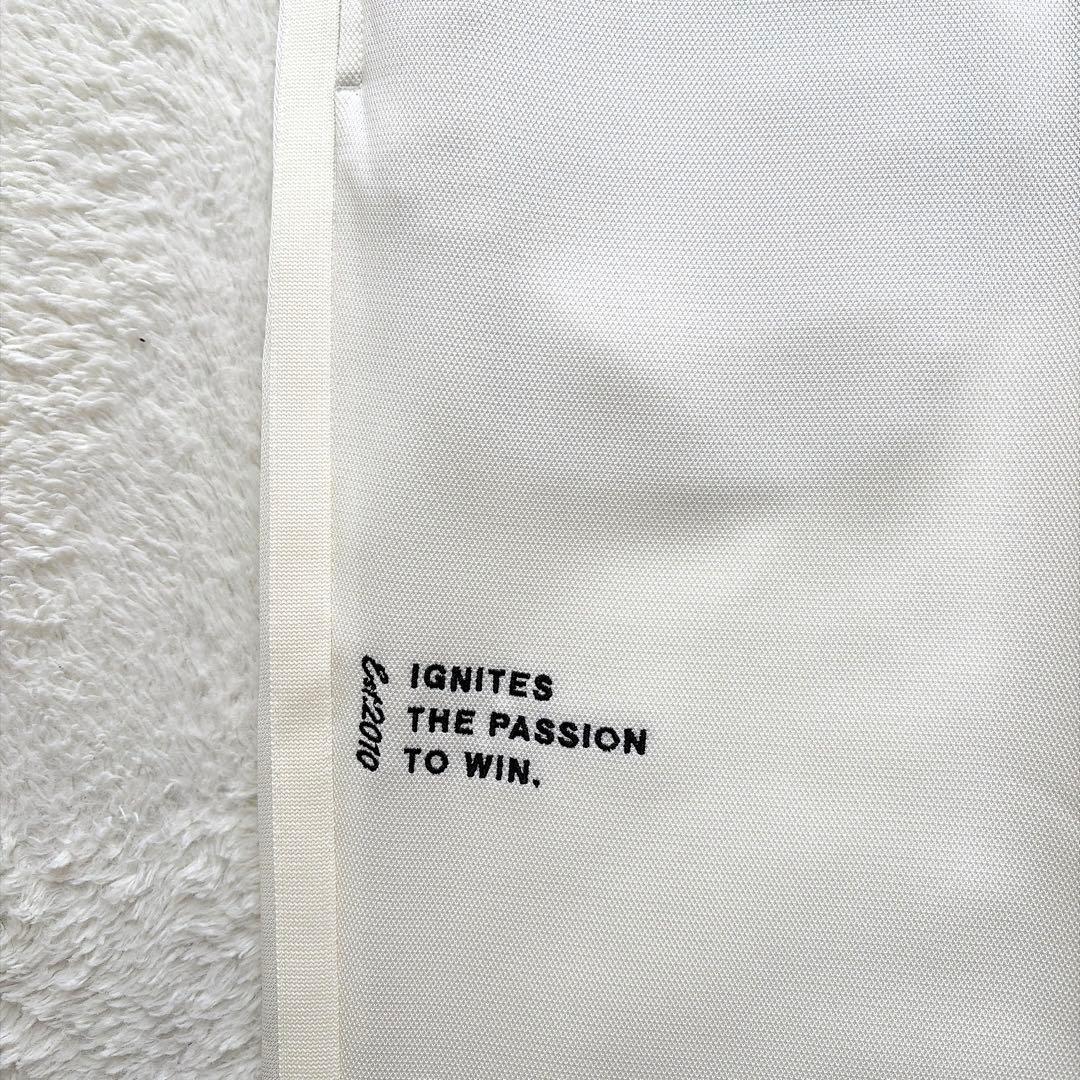 Est.2010
IGNITES
THE PASSION
TO WIN,